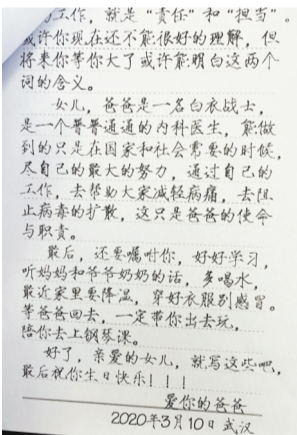 的工作，就是“责任”和“担当”。
或许你现在还不能很好的理解，但
将来你等你大了或许能明白这两个
词的含义。
女儿，爸爸是一名白衣战士，
是一个普普通通的内科医生，能做
到的只是在国家和社会需要的时候，
尽自己的最大的努力，通过自己的
工作，去帮助大家减轻病痛，去阻
止病毒的扩散，这只是爸爸的使命
与职责。
最后，还要嘱咐你，好好学习，
听妈妈和爷爷奶奶的话，多喝水，
最近家里要降温，穿好衣服别感冒。
等爸爸回去，一定带你出去玩，
陪你去上钢琴课。
好了，亲爱的女儿，就写这些吧，
最后祝你生日快乐！！！
爱你的爸爸
2020年3月10日 武汉